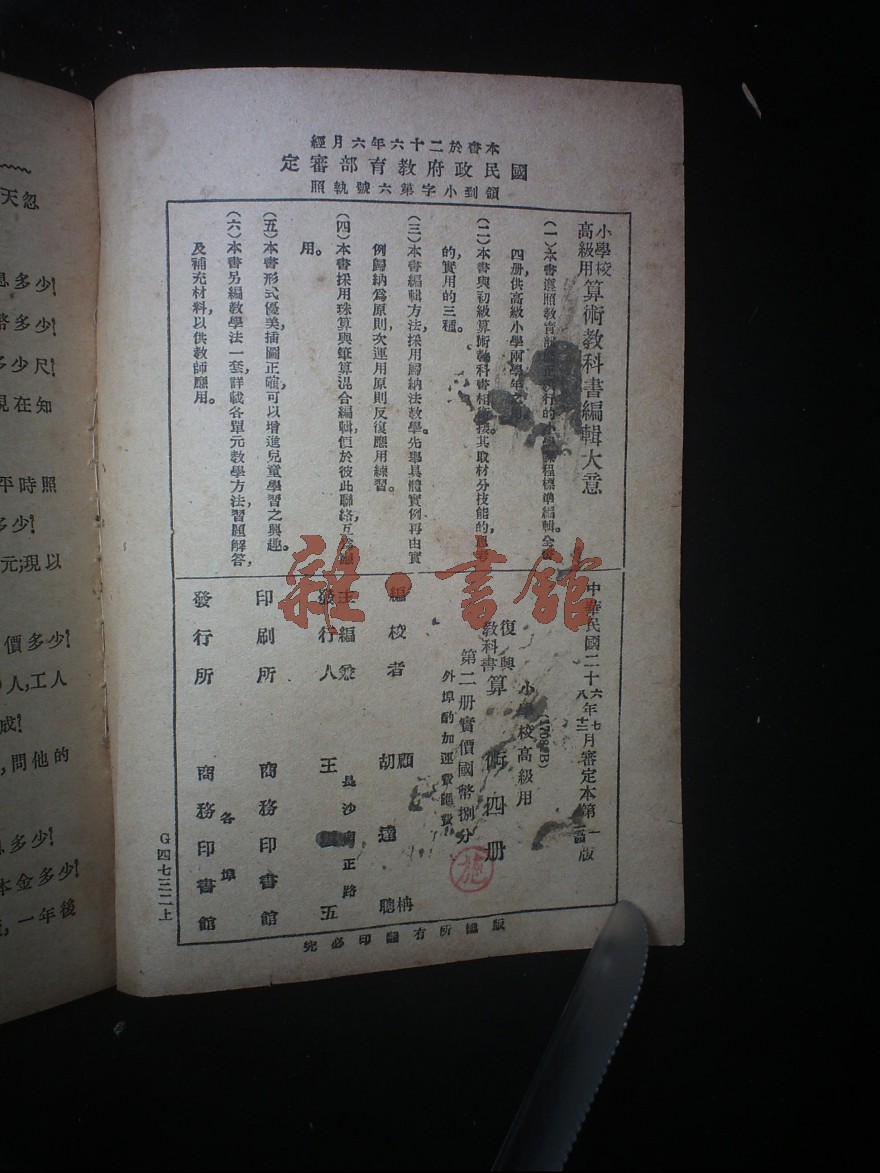 本書於二十六年六月經
國民政府教育部審定
領到小字第六號執照
小學校
高級用
算術教科書編輯大意
(一)本書遵照教育部
行的小學課程標準編輯全書
四册,供高級小學兩學年之用。
(二)本書與初級算術教科書相銜接其取材分技能的,
的,實用的三種。
(三)本書編輯方法,採用歸納法教學先舉具體實例再由實
例歸納爲原則,次運用原則反復應用練習。
(四)本書採用珠算與筆算混合編輯,便於彼此聯絡,互
用。
(五)本書形式優美,插圖正確,可以增進兒童學習之興趣。
(六)本書另編教學法一套,詳載各單元教學方法,習題解答,
及補充材料,以供教師應用。
中華民國二十六年七月審定本第一版
八 十二
小學校高級用
(1709B)
復興
教科書
算術四册
第二册實價國幣捌分
外埠酌加運費匯費
編校者 顧 枏
胡達聰
主編兼
發行人 王 五
長沙南正路
印刷所 商務印書館
發行所 各埠
商務印書館
版權所有翻印必究
G四七三二上
施
雜·書館
天忽
息多少!
幣多少!
多少尺!
現在知
平時照
多少!
元;現以
價多少!
人,工人
成!
,問他的
多少!
本金多少!
,一年後